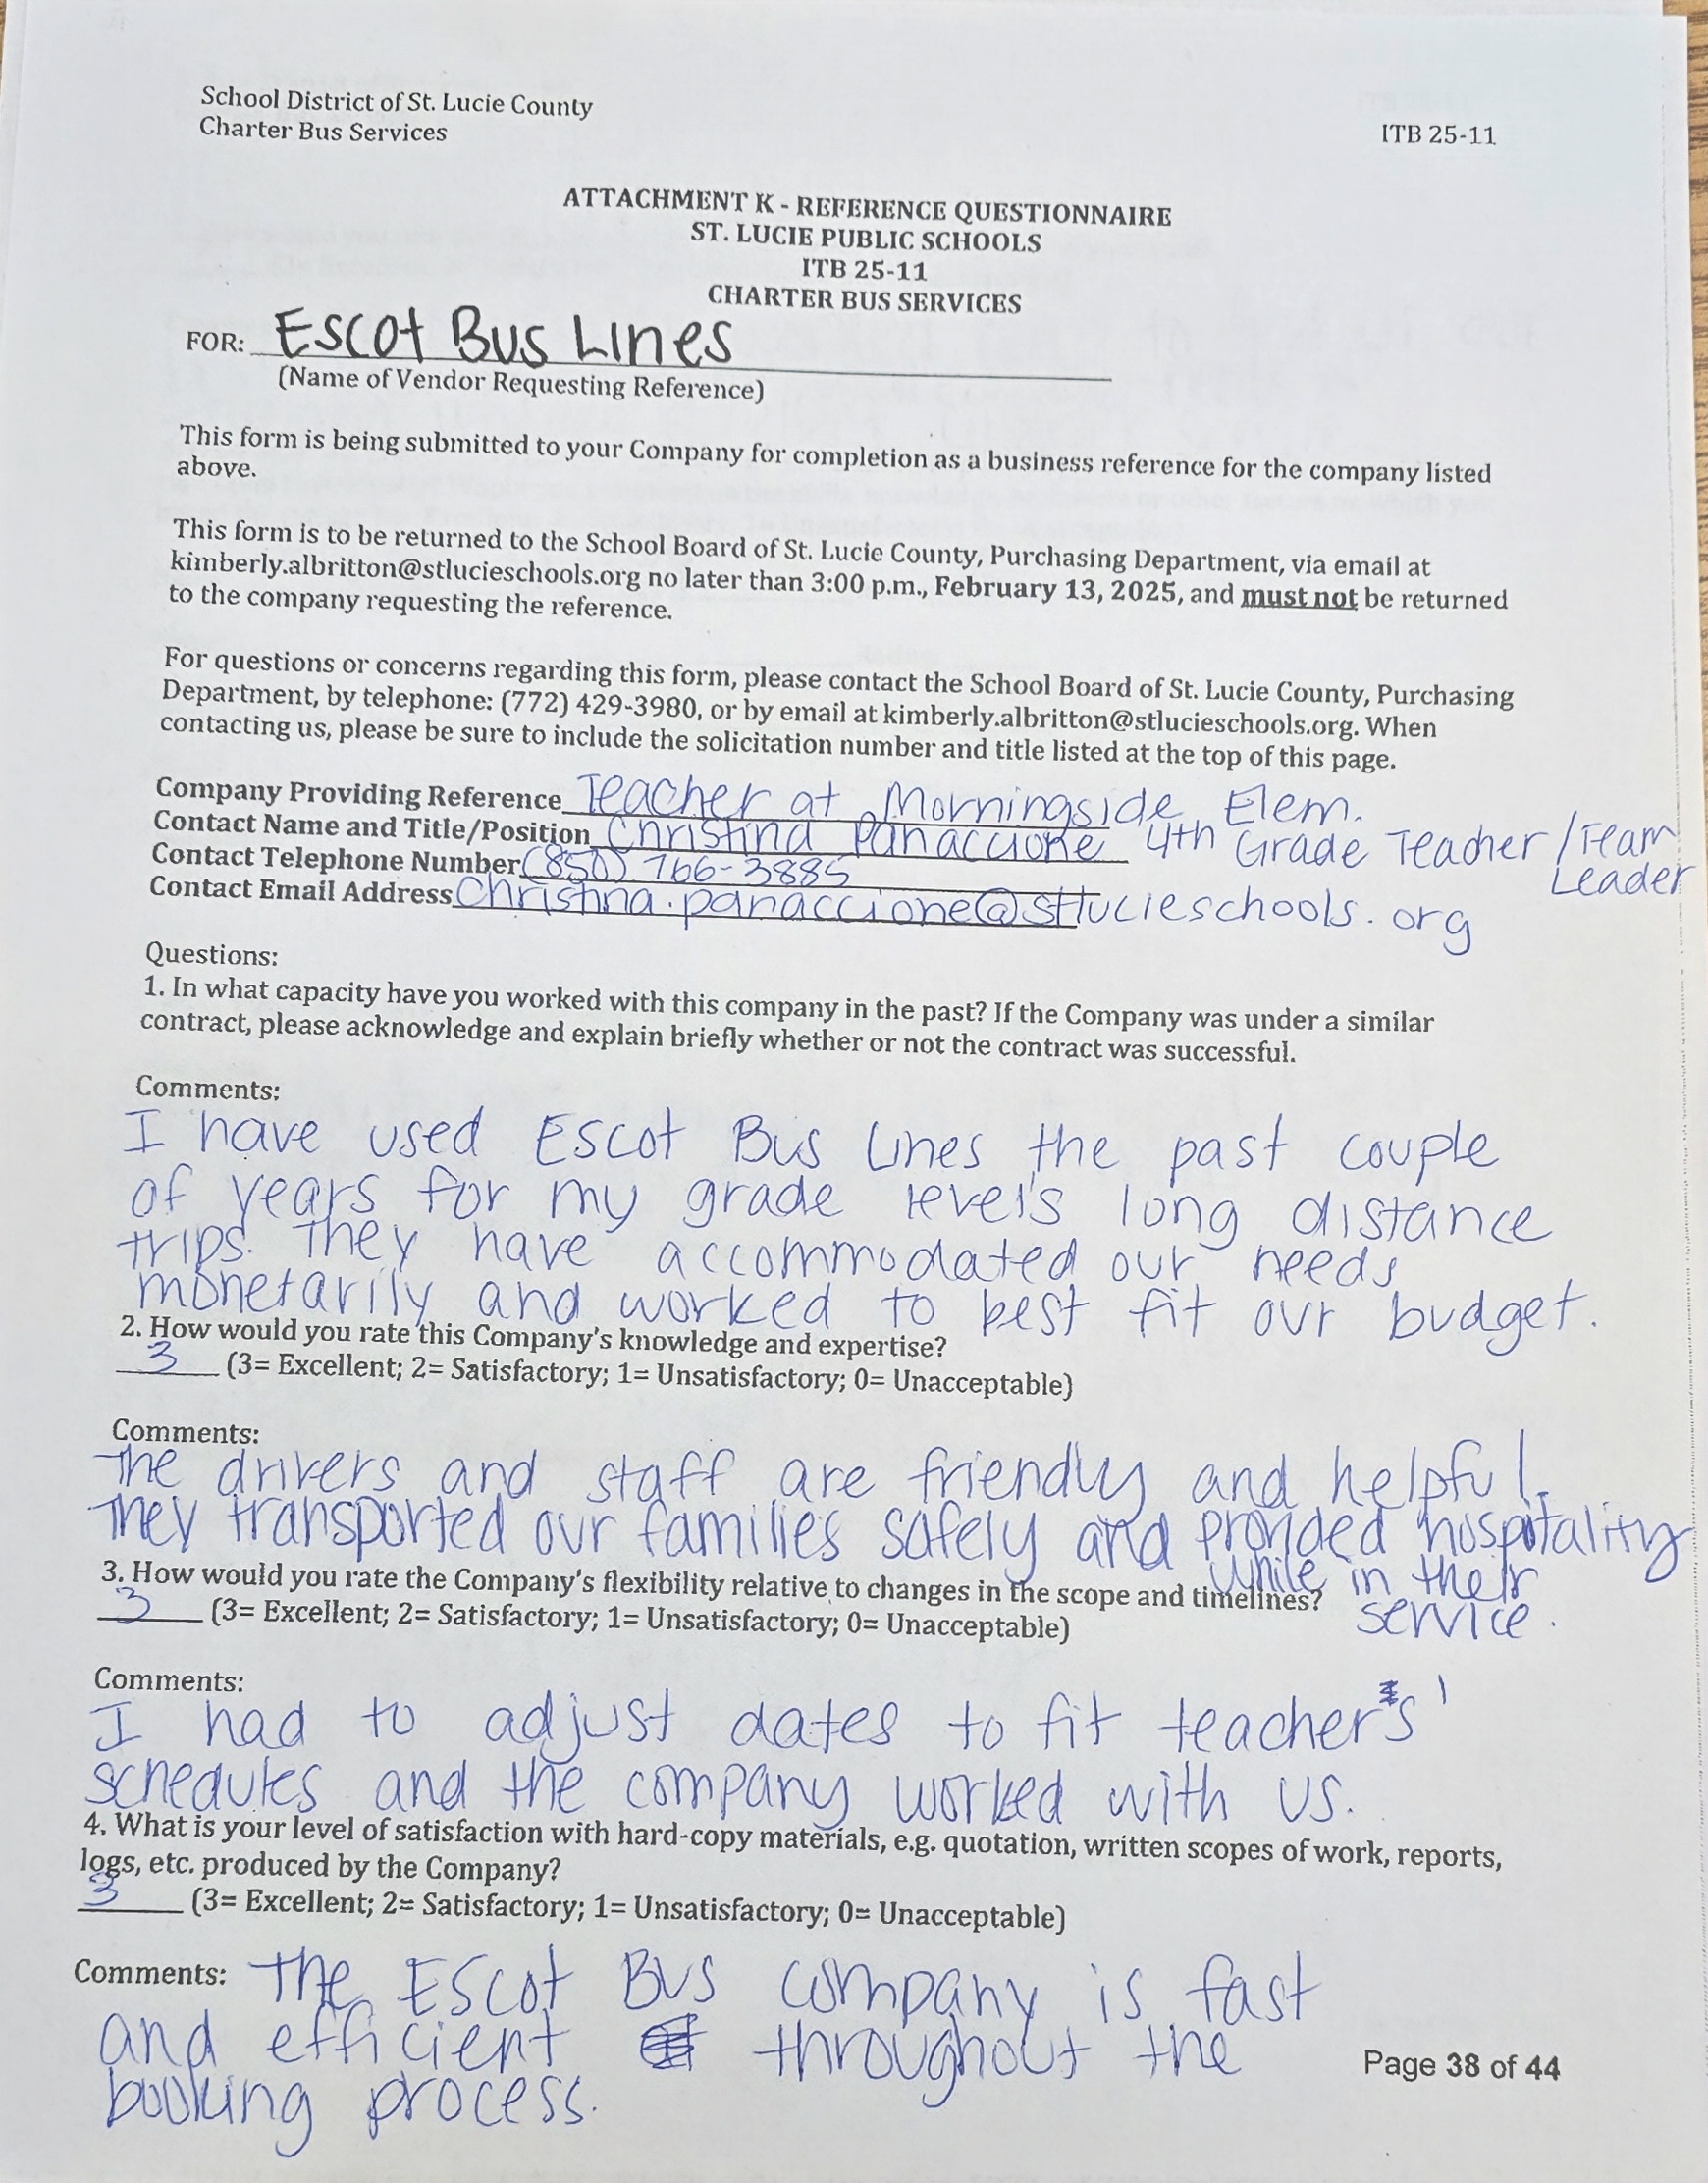 School District of St. Lucie County
Charter Bus Services
ITB 25-11
ATTACHMENT K - REFERENCE QUESTIONNAIRE
ST. LUCIE PUBLIC SCHOOLS
ITB 25-11
CHARTER BUS SERVICES
FOR: Escot Bus Lines
(Name of Vendor Requesting Reference)
This form is being submitted to your Company for completion as a business reference for the company listed
above.
This form is to be returned to the School Board of St. Lucie County, Purchasing Department, via email at
kimberly.albritton@stlucieschools.org no later than 3:00 p.m., February 13, 2025, and must not be returned
to the company requesting the reference.
For questions or concerns regarding this form, please contact the School Board of St. Lucie County, Purchasing
Department, by telephone: (772) 429-3980, or by email at kimberly.albritton@stlucieschools.org. When
contacting us, please be sure to include the solicitation number and title listed at the top of this page.
Company Providing Reference Teacher at Morningside Elem.
Contact Name and Title/Position Christina Panaccione 4th Grade Teacher / Team
Leader
Contact Telephone Number (850) 766-3885
Contact Email Address Christina.panaccione@stlucieschools.org
Questions:
1. In what capacity have you worked with this company in the past? If the Company was under a similar
contract, please acknowledge and explain briefly whether or not the contract was successful.
Comments:
I have used Escot Bus Lines the past couple
of years for my grade level's long distance
trips. They have accommodated our needs
monetarily and worked to best fit our budget.
2. How would you rate this Company's knowledge and expertise?
3 (3= Excellent; 2= Satisfactory; 1= Unsatisfactory; 0= Unacceptable)
Comments:
The drivers and staff are friendly and helpful.
They transported our families safely and provided hospitality
while in their
service.
3. How would you rate the Company's flexibility relative to changes in the scope and timelines?
3 (3= Excellent; 2= Satisfactory; 1= Unsatisfactory; 0= Unacceptable)
Comments:
I had to adjust dates to fit teachers'
schedules and the company worked with us.
4. What is your level of satisfaction with hard-copy materials, e.g. quotation, written scopes of work, reports,
logs, etc. produced by the Company?
3 (3= Excellent; 2= Satisfactory; 1= Unsatisfactory; 0= Unacceptable)
Comments: The Escot Bus company is fast
and efficient throughout the
booking process.
Page 38 of 44